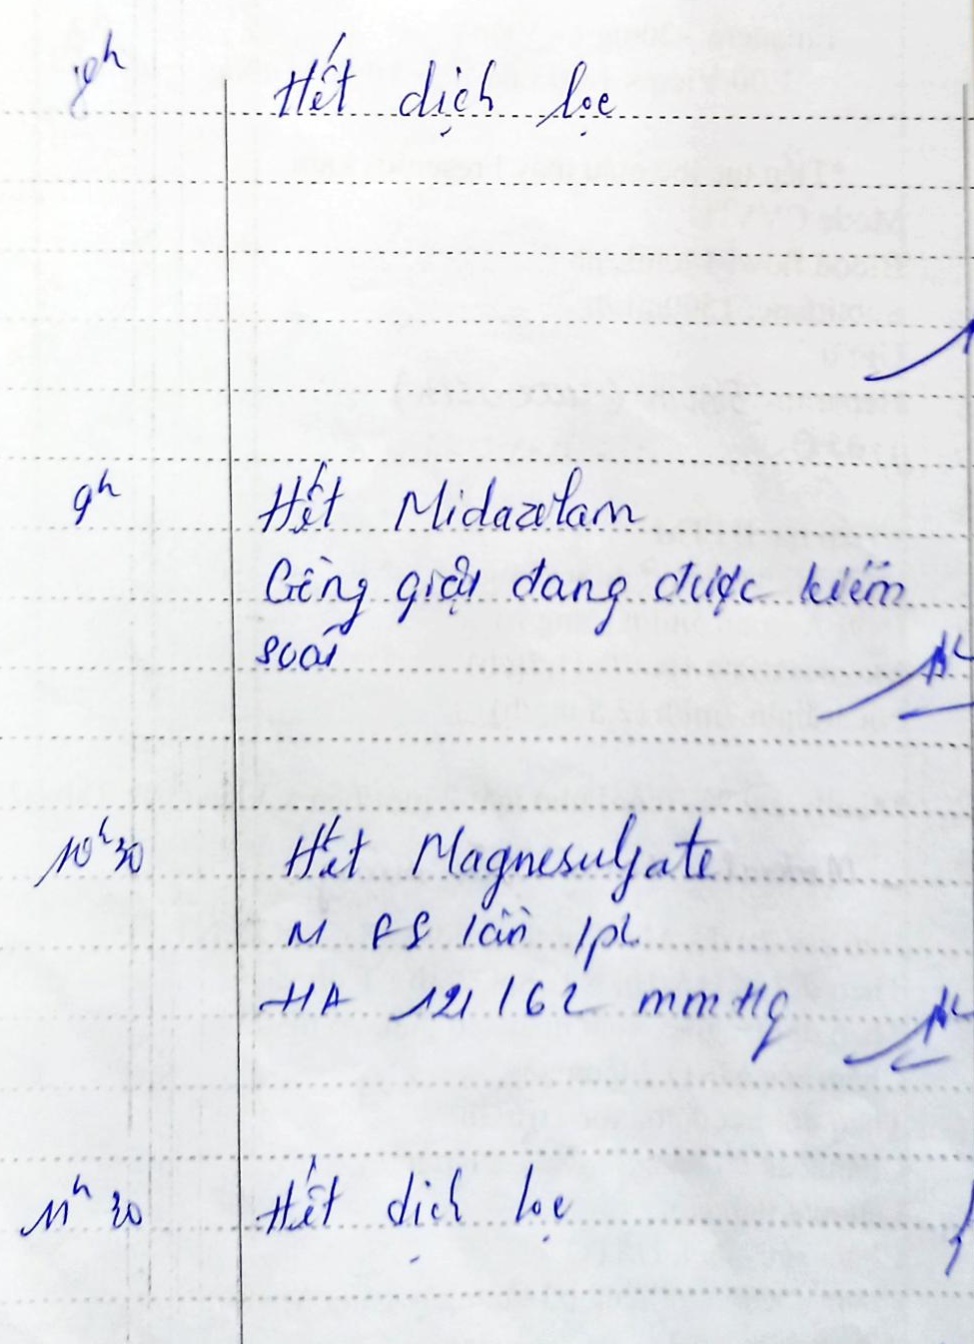 8h Hết dịch lọc
9h Hết Midazolam
Gồng giật đang được kiểm
soát
10h30 Hết Magnesulfate
M 88 lần /ph
HA 121/62 mmHg
11h30 Hết dịch lọc